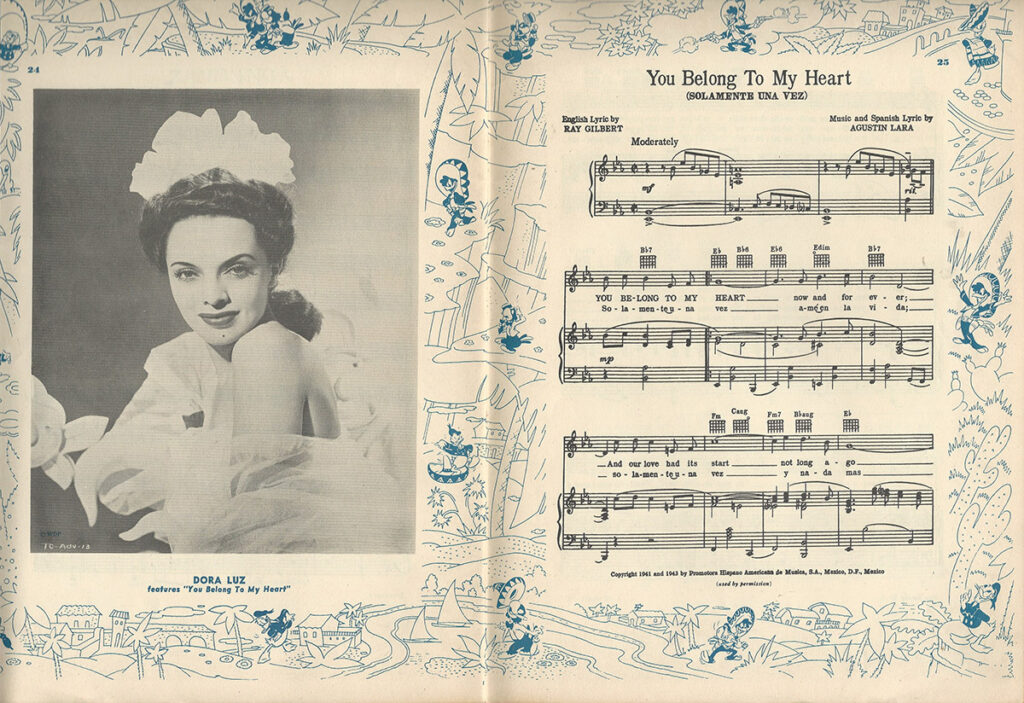 24
10-ADV-13
DORA LUZ
features "You Belong To My Heart"
25
You Belong To My Heart
(SOLAMENTE UNA VEZ)
English Lyric by
RAY GILBERT
Music and Spanish Lyric by
AGUSTIN LARA
Moderately
mf
rit
Bb7 Eb Bb6 Eb6 Edim Bb7
YOU BE-LONG TO MY HEART now and for ev - er;
So - la - men-te u - na vez a-mé en la vi - da;
mp
Fm Caug Fm7 Bbaug Eb
And our love had its start not long a - go
so - la-men-te u - na vez y na - da mas
Copyright 1941 and 1943 by Promotora Hispano Americana de Musica, S.A., Mexico, D.F., Mexico
(used by permission)